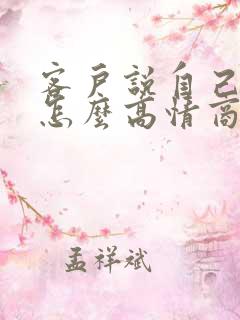 客戶說自己
怎麼高情商
孟祥斌